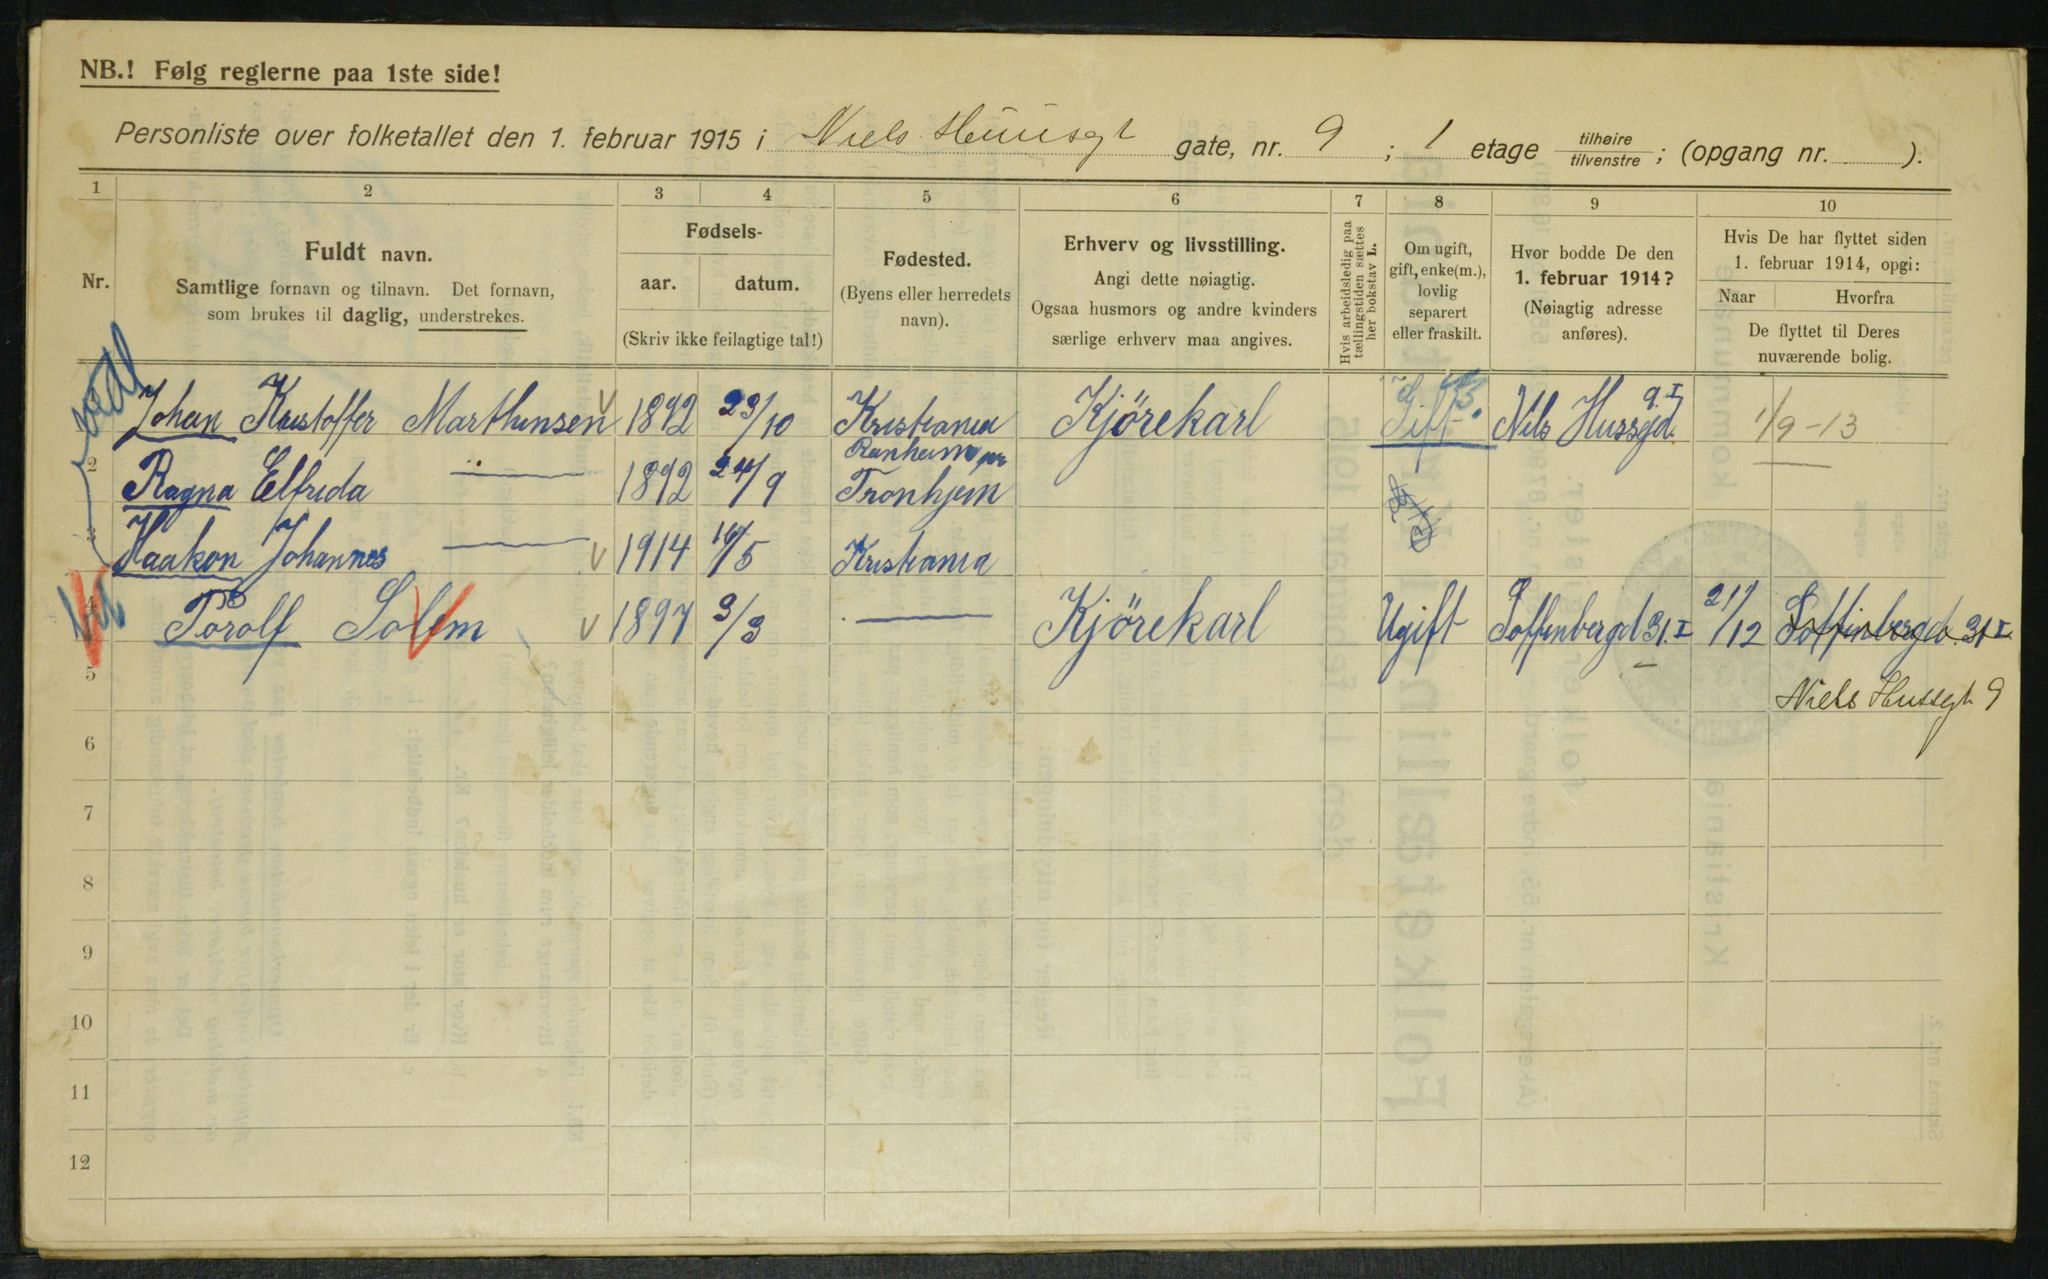 NB.! Følg reglerne paa 1ste side!
Personliste over folketallet den 1. februar 1915 i Niels Huusgt gate, nr. 9 ; 1 etage tilhøire tilvenstre ; (opgang nr. ).
1 2 3 4 5 6 7 8 9 10
Nr.
Fuldt navn.
Samtlige fornavn og tilnavn. Det fornavn,
som brukes til daglig, understrekes.
Fødsels-
aar. datum.
(Skriv ikke feilagtige tal!)
Fødested.
(Byens eller herredets
navn).
Erhverv og livsstilling.
Angi dette nøiagtig.
Ogsaa husmors og andre kvinders
særlige erhverv maa angives.
Hvis arbeidsledig paa
tællingstiden sættes
her bokstav L.
Om ugift,
gift, enke(m.),
lovlig
separert
eller fraskilt.
Hvor bodde De den
1. februar 1914?
(Nøiagtig adresse
anføres).
Hvis De har flyttet siden
1. februar 1914, opgi:
Naar Hvorfra
De flyttet til Deres
nuværende bolig.
Johan Kristoffer Marthinsen 1892 23/10 Kristiania Kjørekarl Gift Nils Hussgd. 9.I 1/9-13
2 Ragna Elfrida — 1892 24/9 Ranheim pr Tronhjem
3 Haakon Johannes — 1914 16/5 Kristiania
4 Torolf Solem 1897 3/3 — Kjørekarl Ugift Toffenbergd 31.I 21/12 Toffinbergd. 31 I
5 Niels Hussgt 9
6
7
8
9
10
11
12